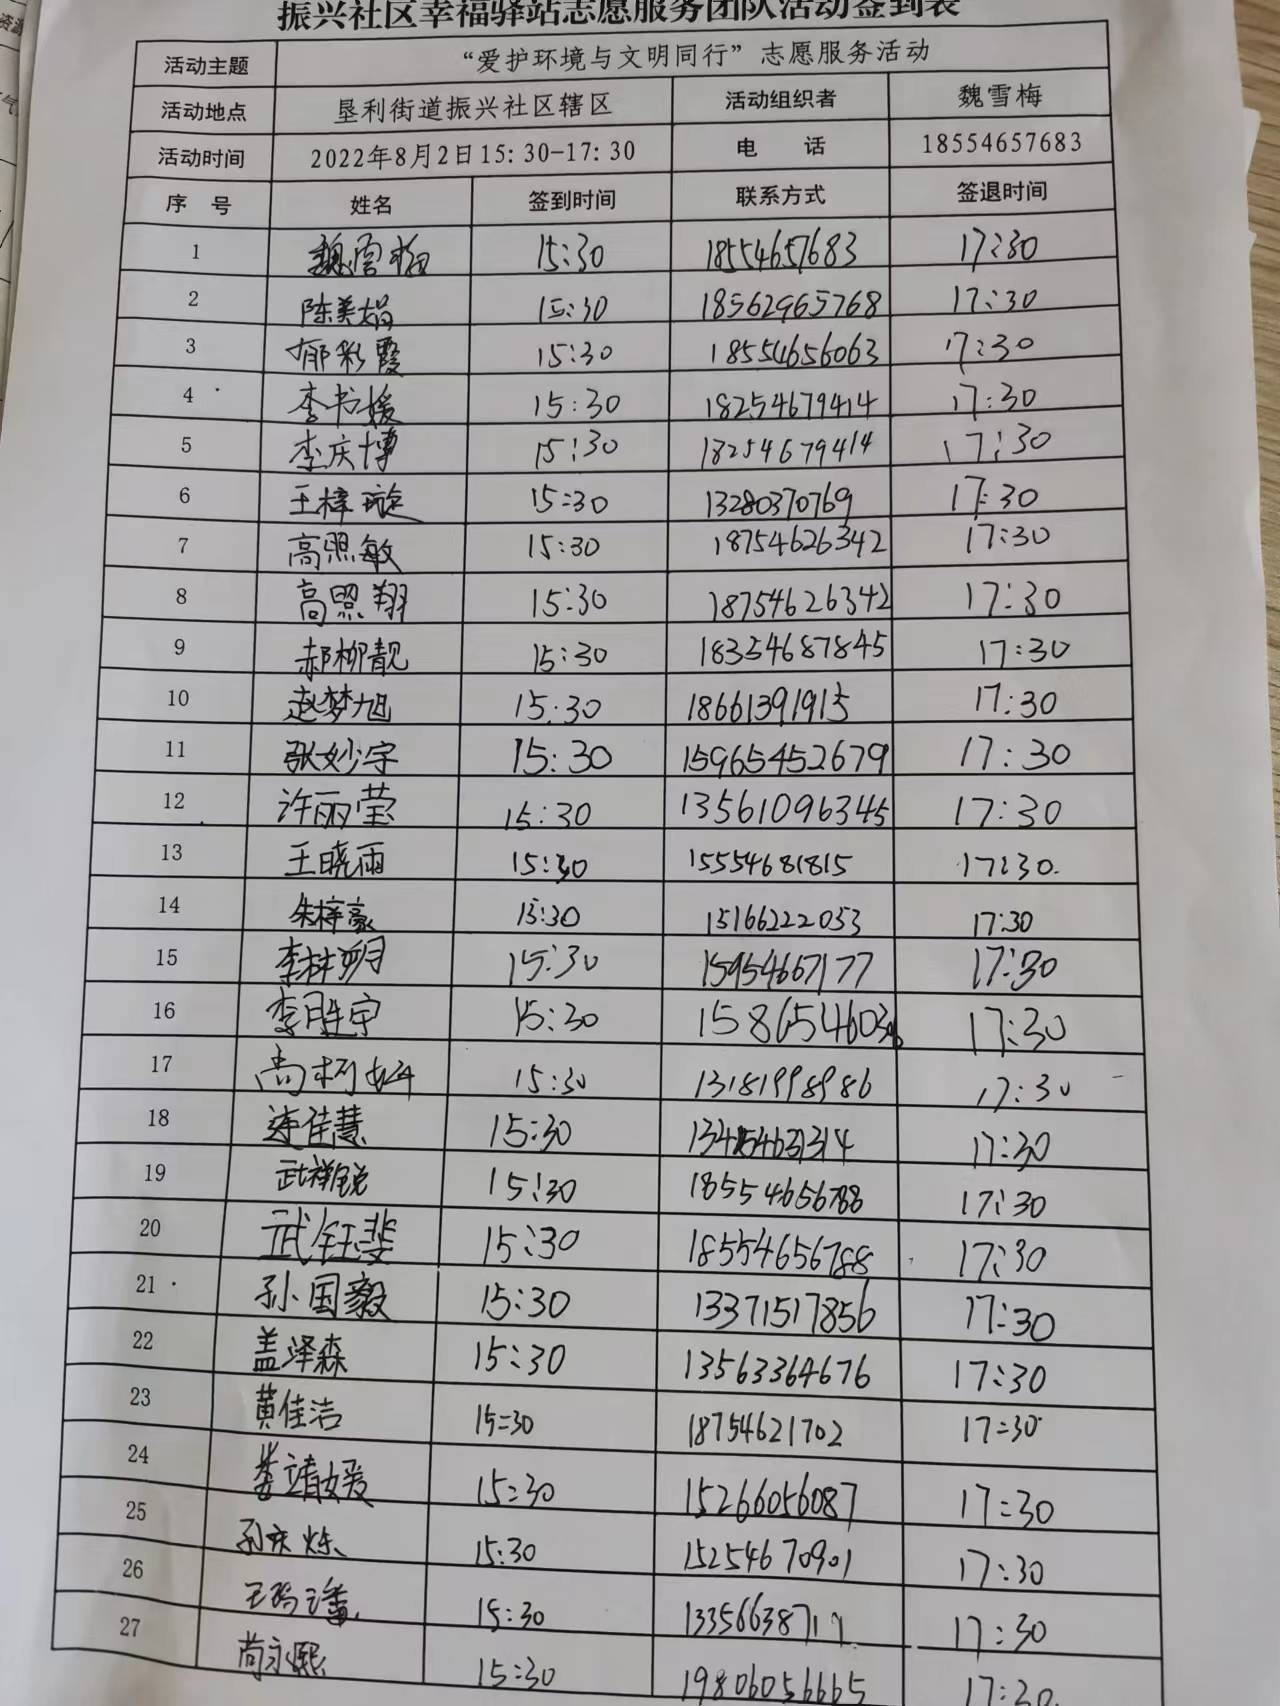 振兴社区幸福驿站志愿服务团队活动签到表
活动主题 “爱护环境与文明同行”志愿服务活动
活动地点 垦利街道振兴社区辖区 活动组织者 魏雪梅
活动时间 2022年8月2日15:30-17:30 电 话 18554657683
序 号 姓名 签到时间 联系方式 签退时间
1 魏雪梅 15:30 18554657683 17:30
2 陈美娟 15:30 18562965768 17:30
3 郁彩霞 15:30 18554656063 17:30
4 李书媛 15:30 18254679414 17:30
5 李庆博 15:30 18254679414 17:30
6 王梓璇 15:30 13280370769 17:30
7 高照敏 15:30 18754626342 17:30
8 高照翔 15:30 18754626342 17:30
9 郝柳靓 15:30 18354687845 17:30
10 赵梦旭 15:30 18661391915 17:30
11 张妙宇 15:30 15965452679 17:30
12 许丽莹 15:30 13561096345 17:30
13 王晓雨 15:30 15554681815 17:30
14 朱梓豪 15:30 15166222053 17:30
15 李林玥 15:30 15954667177 17:30
16 李胜宇 15:30 17:30
17 15:30 13181998986 17:30
18 连佳慧 15:30 17:30
19 武祥锐 15:30 18554656788 17:30
20 武钰斐 15:30 18554656788 17:30
21 孙国毅 15:30 13371517856 17:30
22 盖泽森 15:30 13563364676 17:30
23 黄佳洁 15:30 18754621702 17:30
24 娄靖媛 15:30 15266056087 17:30
25 15:30 15254670901 17:30
26 15:30 17:30
27 尚永熙 15:30 19806056665 17:30